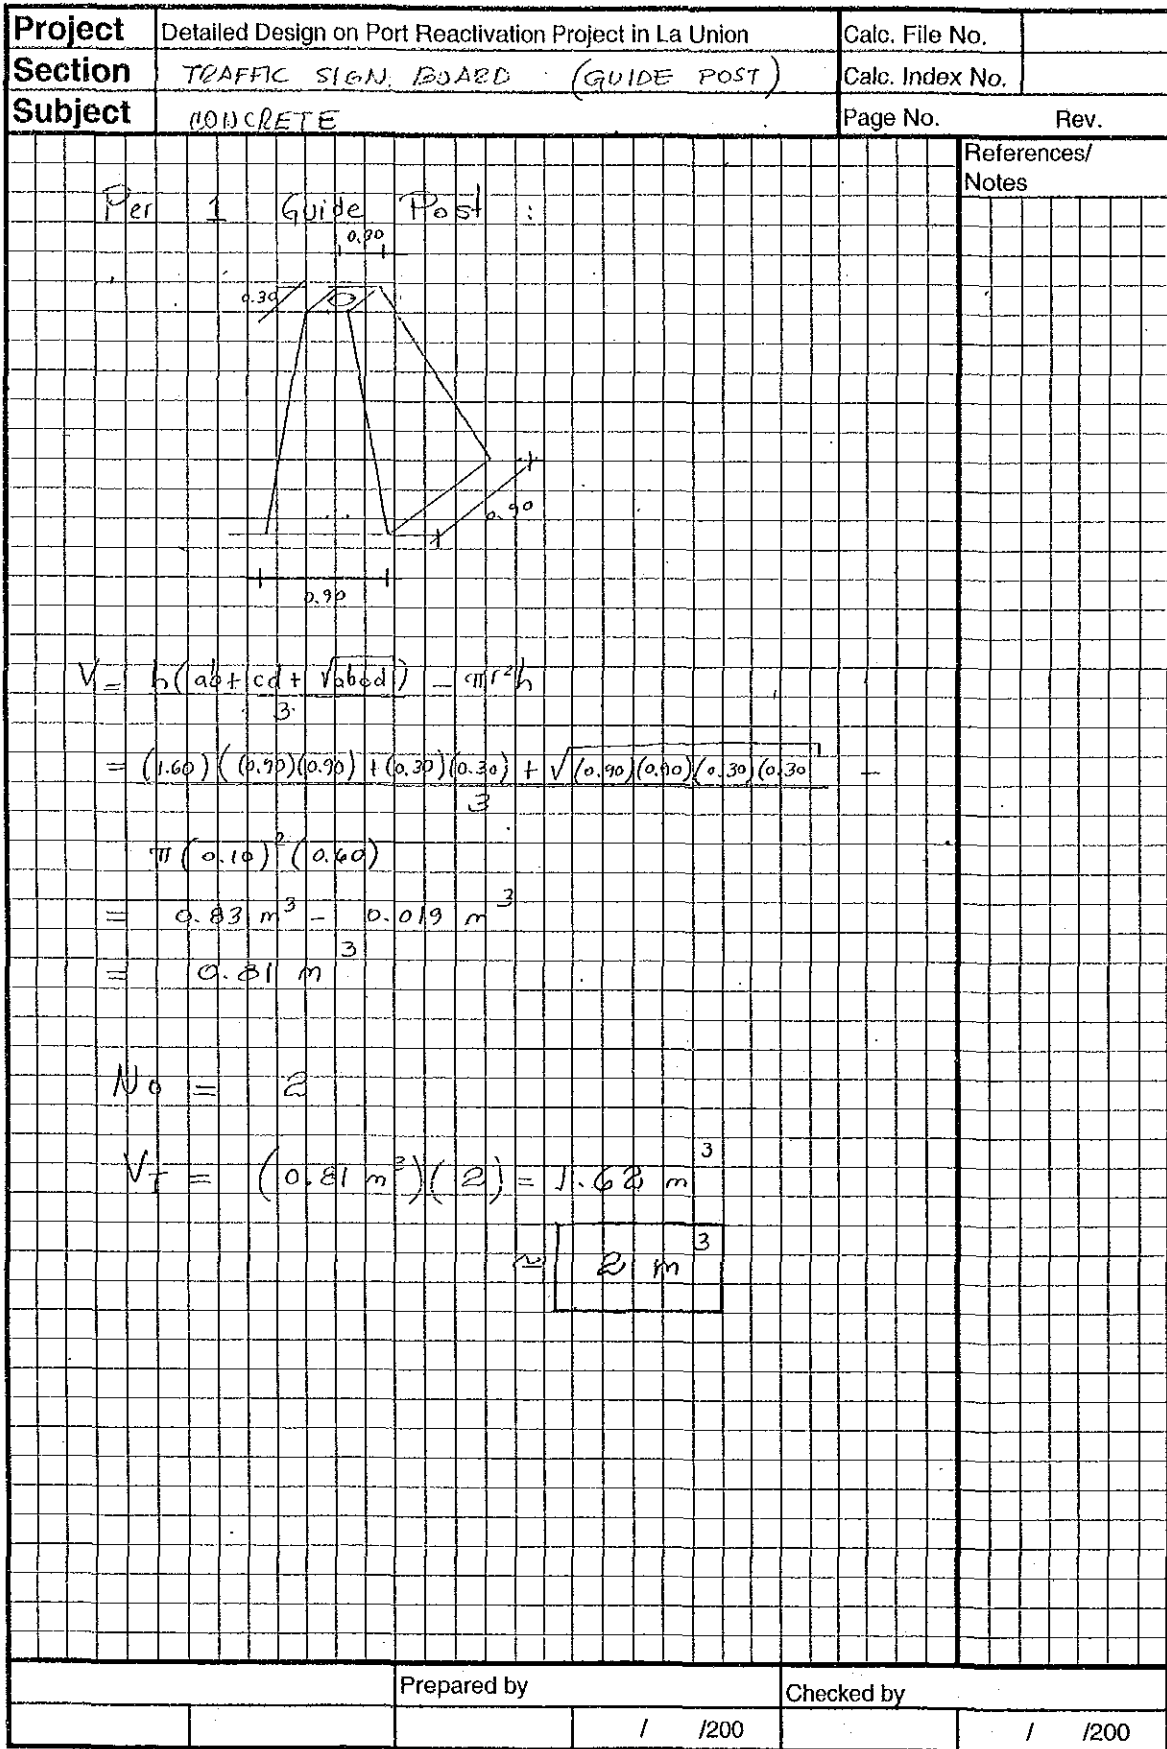 Project Detailed Design on Port Reactivation Project in La Union Calc. File No.
Section TRAFFIC SIGN BOARD (GUIDE POST) Calc. Index No.
Subject CONCRETE Page No. Rev.
References/
Notes
Per 1 Guide Post :
0.30
0.30
0.90
0.90
V = h(ab + cd + √abcd) - πr²h
3
= (1.60)((0.90)(0.90) + (0.30)(0.30) + √(0.90)(0.90)(0.30)(0.30) -
3
π(0.10)²(0.60)
= 0.83 m³ - 0.019 m³
= 0.81 m³
No = 2
VT = (0.81 m³)(2) = 1.62 m³
≈ 2 m³
Prepared by Checked by
/ /200 / /200